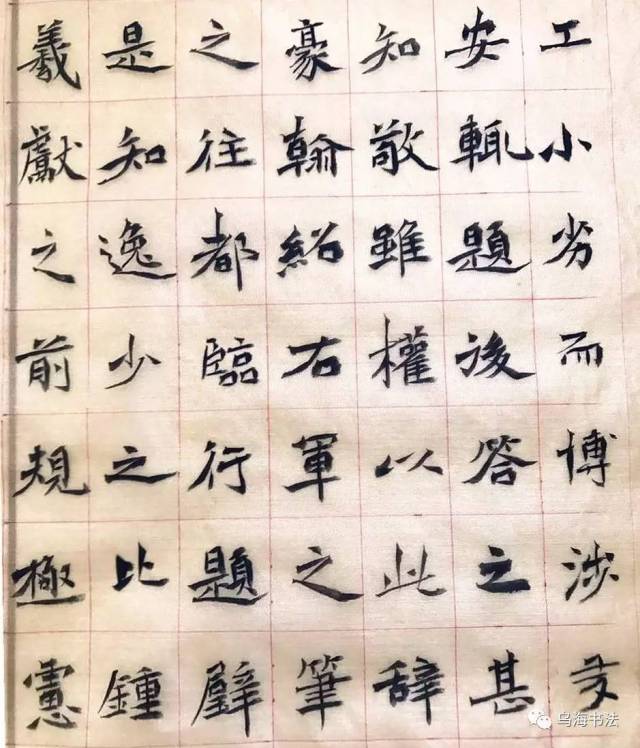 工小劣而博涉多
安輒題後答之甚
知敬雖權以此辭
豪翰紹右軍之筆
之往都臨行題壁
是知逸少之比鍾
羲獻之前規極慮
乌海书法